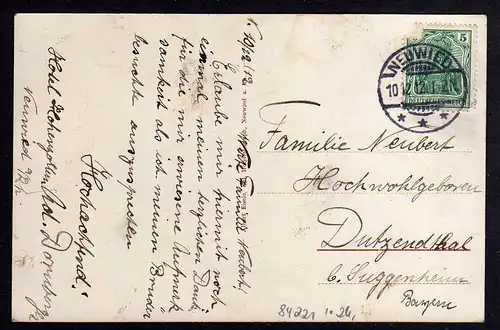 N. 10/12 12
Werte Familie Neubert!
Erlaube mir hiermit noch
einmal meinen herzlichen Dank
für die mir erwiesene Aufmerk
samkeit als ich meinen Bruder
besuchte auszusprechen
Hochachtend!
Hotel Hohenzollern
Neuwied a/Rh
NEUWIED
10.12.12
5
DEUTSCHES REICH
Familie Neubert
Hochwohlgeboren
Dutzendthal
b. Suggenheim
Bayern
84221